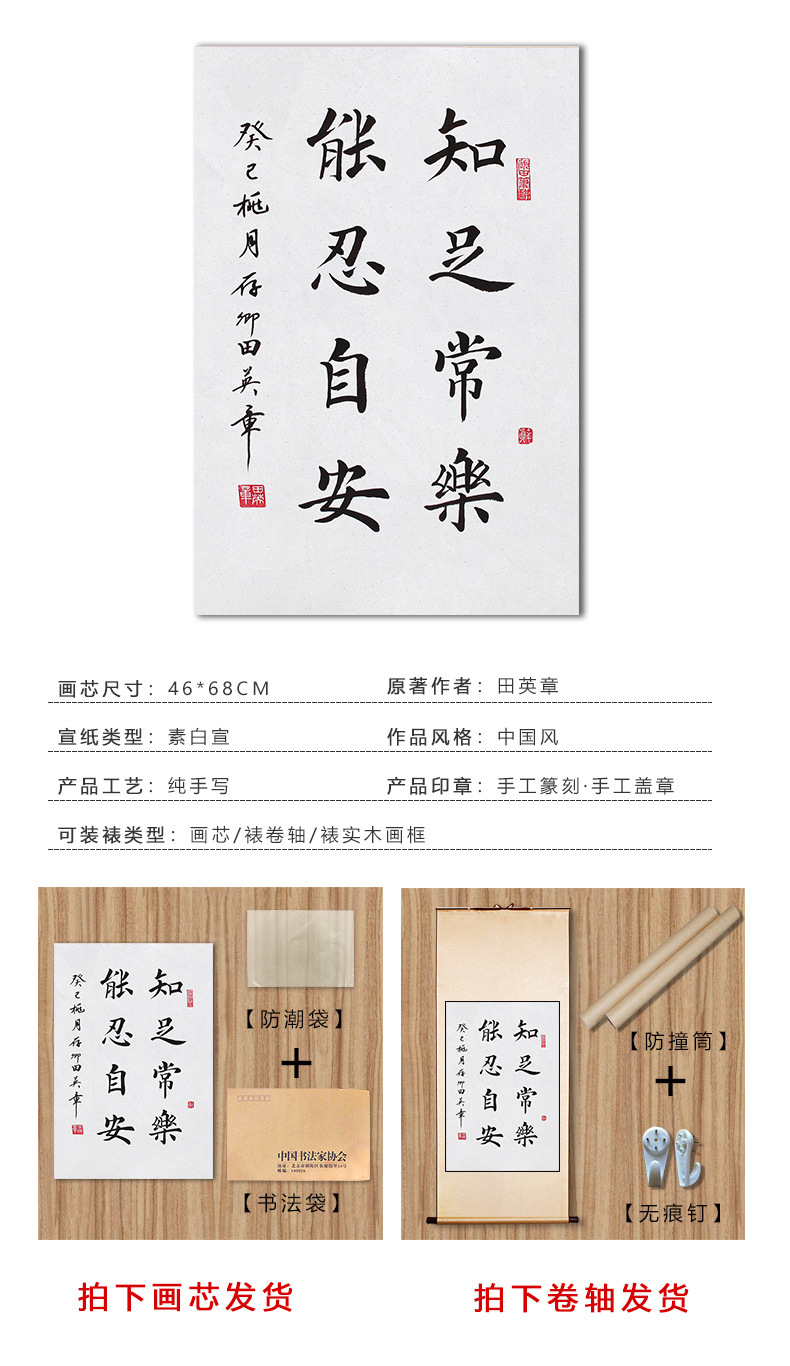 知足常樂
能忍自安
癸巳桃月存卿田英章
画芯尺寸：46*68CM
原著作者：田英章
宣纸类型：素白宣
作品风格：中国风
产品工艺：纯手写
产品印章：手工篆刻·手工盖章
可装裱类型：画芯/裱卷轴/裱实木画框
知足常樂
能忍自安
癸巳桃月存卿田英章
【防潮袋】
+
中国书法家协会
【书法袋】
知足常樂
能忍自安
癸巳桃月存卿田英章
【防撞筒】
+
【无痕钉】
拍下画芯发货
拍下卷轴发货